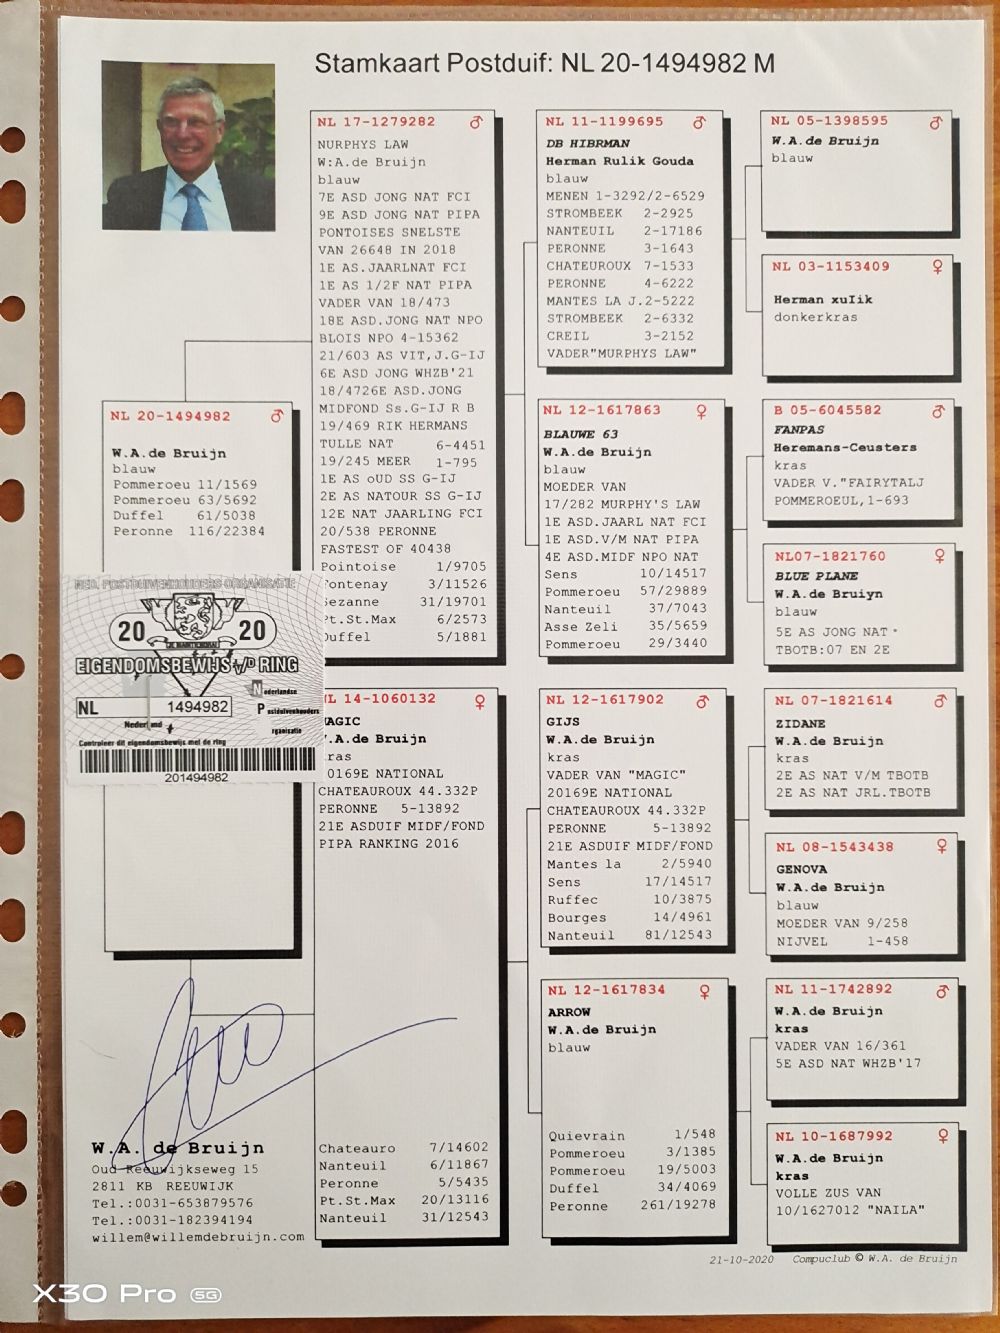 Stamkaart Postduif: NL 20-1494982 M
NL 20-1494982 ♂
W.A.de Bruijn
blauw
Pommeroeu 11/1569
Pommeroeu 63/5692
Duffel 61/5038
Peronne 116/22384
NED. POSTDUIVENHOUDERS ORGANISATIE
20 20
EIGENDOMSBEWIJS v/d RING
NL 1494982
Nederlandse
Postduivenhouders
rganisatie
Controleer dit eigendomsbewijs met de ring
201494982
W.A. de Bruijn
Oud Reeuwijkseweg 15
2811 KB REEUWIJK
Tel.:0031-653879576
Tel.:0031-182394194
willem@willemdebruijn.com
NL 17-1279282 ♂
NURPHYS LAW
W:A.de Bruijn
blauw
7E ASD JONG NAT FCI
9E ASD JONG NAT PIPA
PONTOISES SNELSTE
VAN 26648 IN 2018
1E AS.JAARLNAT FCI
1E AS 1/2F NAT PIPA
VADER VAN 18/473
18E ASD.JONG NAT NPO
BLOIS NPO 4-15362
21/603 AS VIT,J.G-IJ
6E ASD JONG WHZB'21
18/4726E ASD.JONG
MIDFOND Ss.G-IJ R B
19/469 RIK HERMANS
TULLE NAT 6-4451
19/245 MEER 1-795
1E AS oUD SS G-IJ
2E AS NATOUR SS G-IJ
12E NAT JAARLING FCI
20/538 PERONNE
FASTEST OF 40438
Pointoise 1/9705
Fontenay 3/11526
Sezanne 31/19701
Pt.St.Max 6/2573
Duffel 5/1881
NL 14-1060132 ♀
MAGIC
W.A.de Bruijn
kras
20169E NATIONAL
CHATEAUROUX 44.332P
PERONNE 5-13892
21E ASDUIF MIDF/FOND
PIPA RANKING 2016
Chateauro 7/14602
Nanteuil 6/11867
Peronne 5/5435
Pt.St.Max 20/13116
Nanteuil 31/12543
NL 11-1199695 ♂
DB HIBRMAN
Herman Rulik Gouda
blauw
MENEN 1-3292/2-6529
STROMBEEK 2-2925
NANTEUIL 2-17186
PERONNE 3-1643
CHATEUROUX 7-1533
PERONNE 4-6222
MANTES LA J.2-5222
STROMBEEK 2-6332
CREIL 3-2152
VADER"MURPHYS LAW"
NL 12-1617863 ♀
BLAUWE 63
W.A.de Bruijn
blauw
MOEDER VAN
17/282 MURPHY'S LAW
1E ASD.JAARL NAT FCI
1E ASD.V/M NAT PIPA
4E ASD.MIDF NPO NAT
Sens 10/14517
Pommeroeu 57/29889
Nanteuil 37/7043
Asse Zeli 35/5659
Pommeroeu 29/3440
NL 12-1617902 ♂
GIJS
W.A.de Bruijn
kras
VADER VAN "MAGIC"
20169E NATIONAL
CHATEAUROUX 44.332P
PERONNE 5-13892
21E ASDUIF MIDF/FOND
Mantes la 2/5940
Sens 17/14517
Ruffec 10/3875
Bourges 14/4961
Nanteuil 81/12543
NL 12-1617834 ♀
ARROW
W.A.de Bruijn
blauw
Quievrain 1/548
Pommeroeu 3/1385
Pommeroeu 19/5003
Duffel 34/4069
Peronne 261/19278
NL 05-1398595 ♂
W.A.de Bruijn
blauw
NL 03-1153409 ♀
Herman xuIik
donkerkras
B 05-6045582 ♂
FANPAS
Heremans-Ceusters
kras
VADER V."FAIRYTALJ
POMMEROEUL,1-693
NL07-1821760 ♀
BLUE PLANE
W.A.de Bruiyn
blauw
5E AS JONG NAT
TBOTB:07 EN 2E
NL 07-1821614 ♂
ZIDANE
W.A.de Bruijn
kras
2E AS NAT V/M TBOTB
2E AS NAT JRL.TBOTB
NL 08-1543438 ♀
GENOVA
W.A.de Bruijn
blauw
MOEDER VAN 9/258
NIJVEL 1-458
NL 11-1742892 ♂
W.A.de Bruijn
kras
VADER VAN 16/361
5E ASD NAT WHZB'17
NL 10-1687992 ♀
W.A.de Bruijn
kras
VOLLE ZUS VAN
10/1627012 "NAILA"
21-10-2020 Compuclub © W.A. de Bruijn
X30 Pro 5G